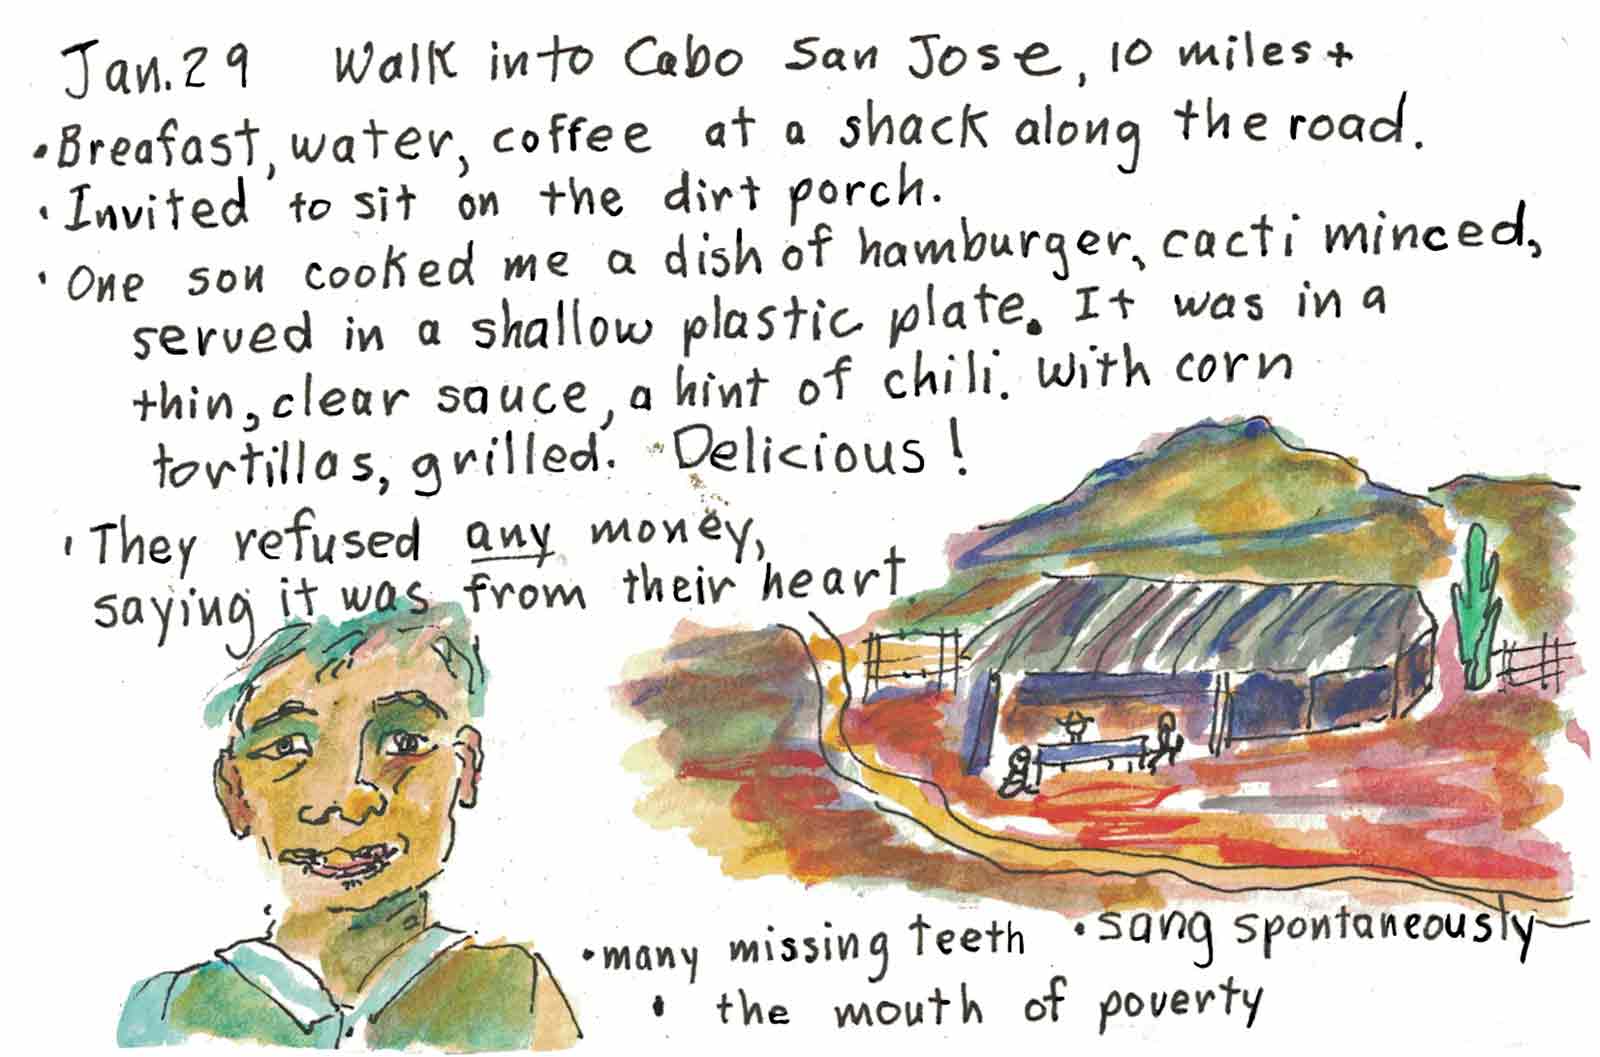 Jan. 29 Walk into Cabo San Jose, 10 miles +
• Breafast, water, coffee at a shack along the road.
• Invited to sit on the dirt porch.
• One son cooked me a dish of hamburger, cacti minced,
served in a shallow plastic plate. It was in a
thin, clear sauce, a hint of chili. With corn
tortillas, grilled. Delicious!
• They refused any money,
saying it was from their heart
• many missing teeth • sang spontaneously
• the mouth of poverty